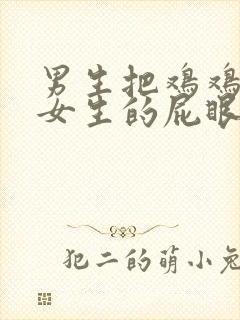 男生把鸡鸡
女生的屁眼
犯二的萌小兔